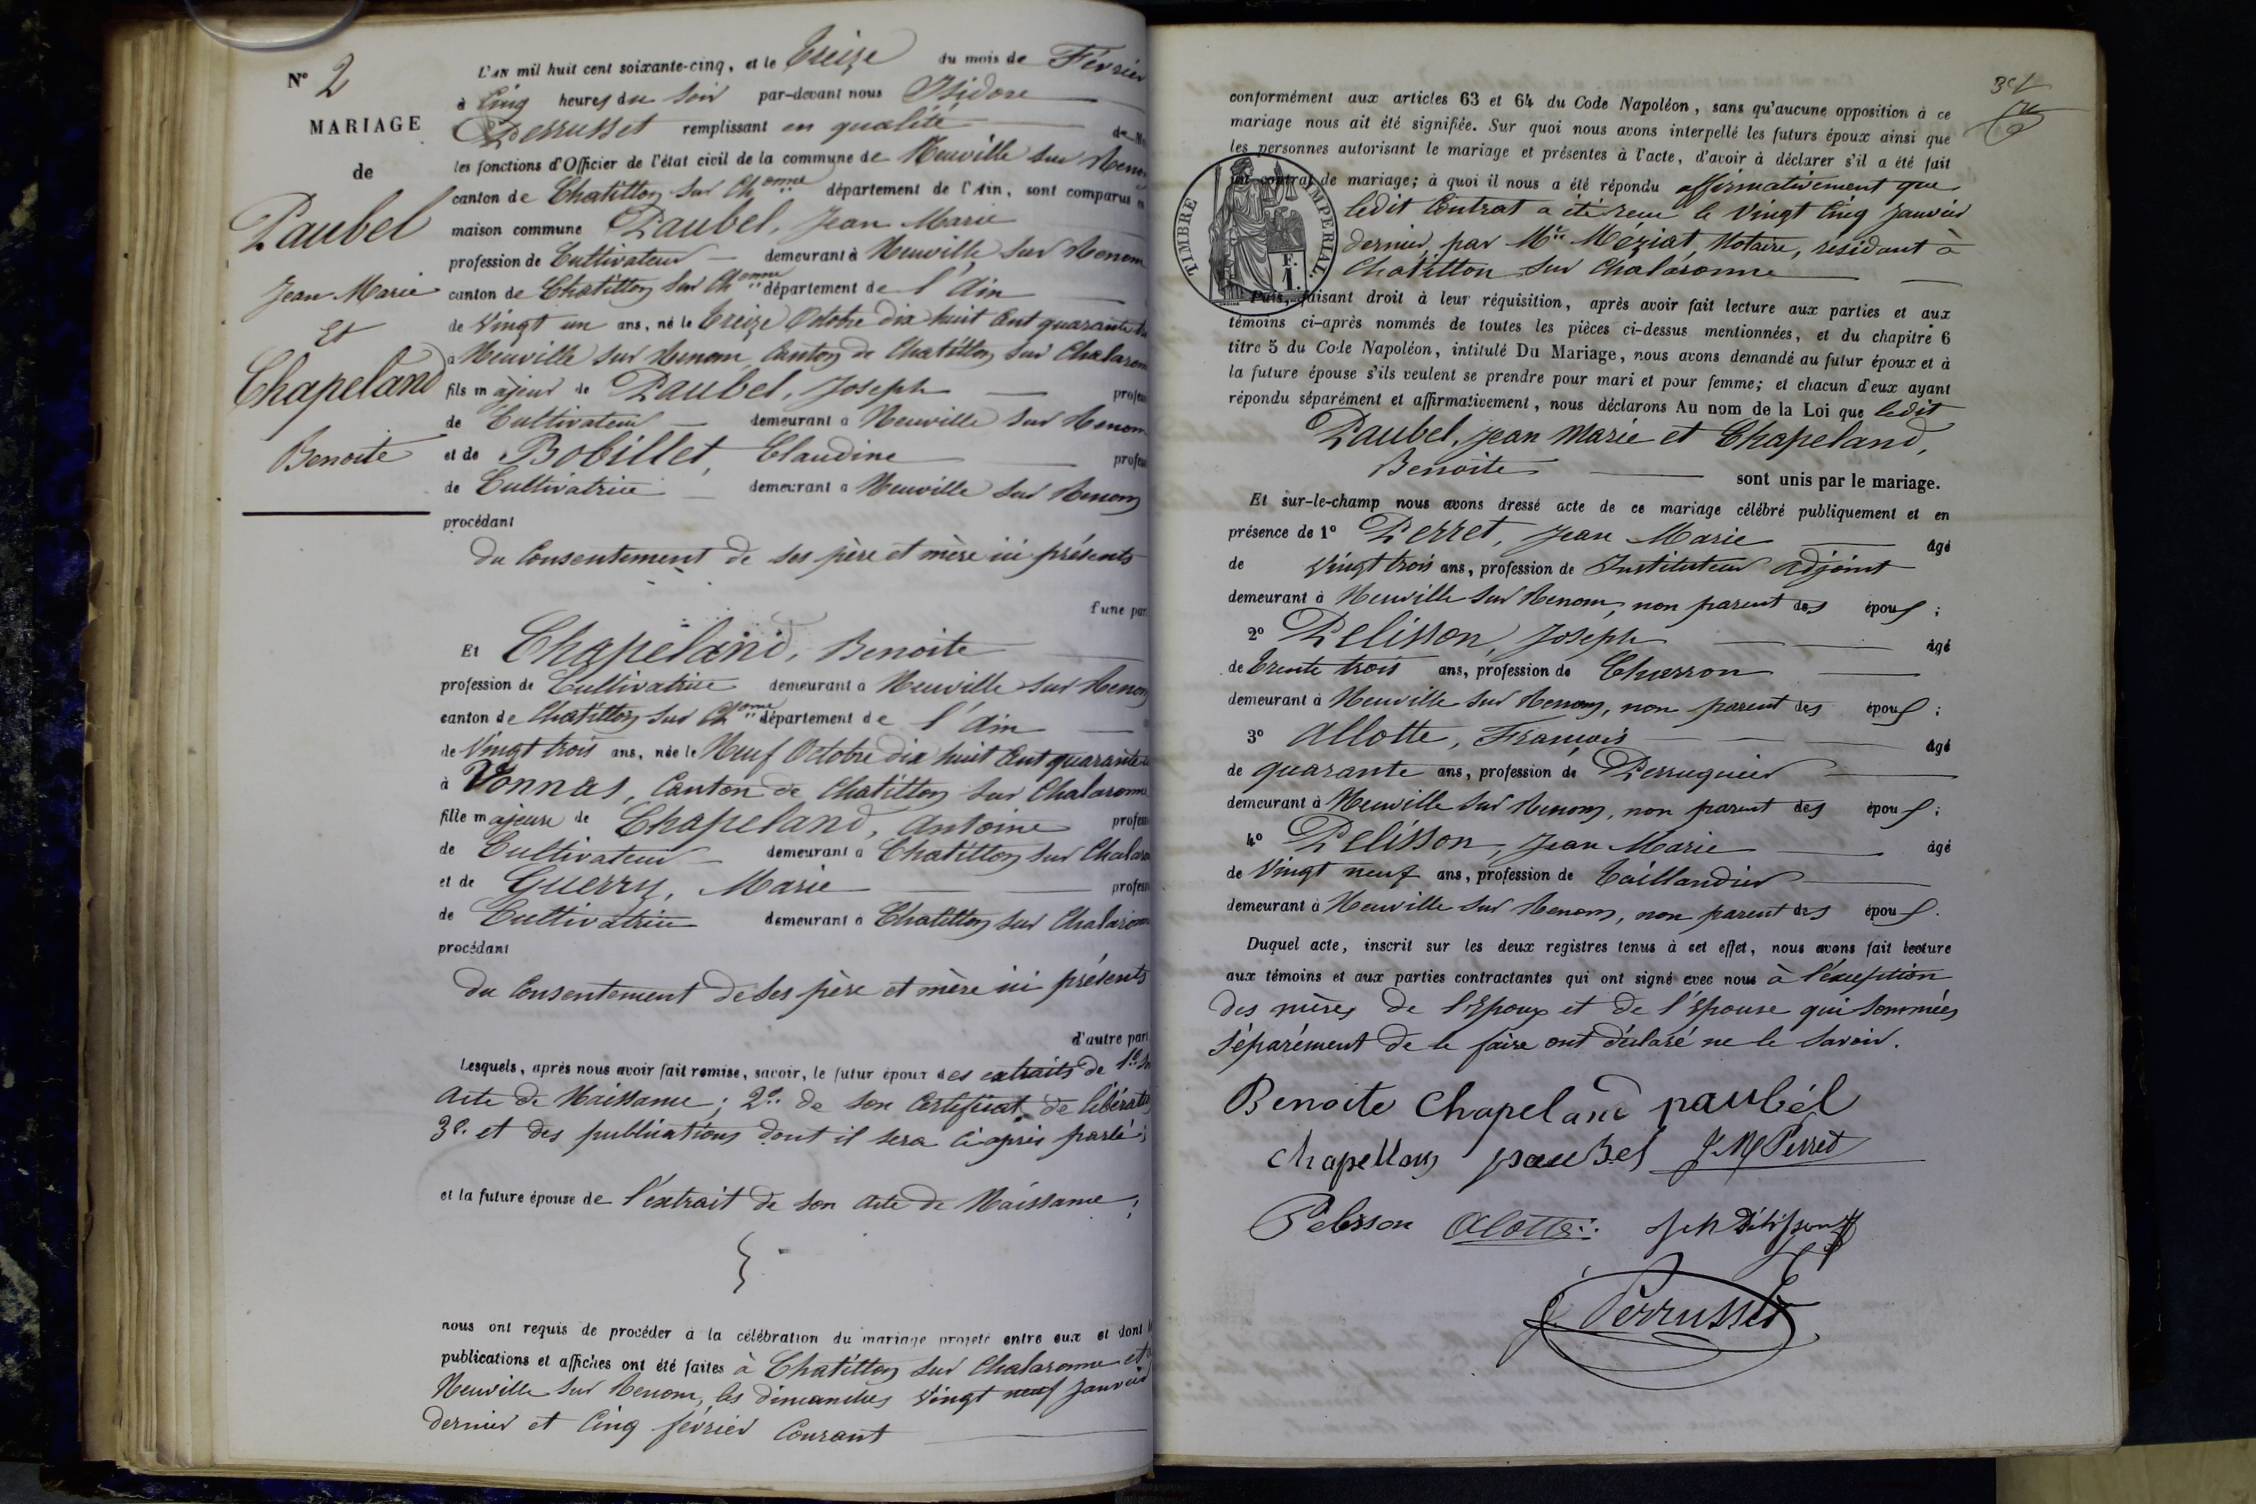 N° 2
MARIAGE
de
Paubel
Jean Marie
et
Chapeland
Benoite
L'AN mil huit cent soixante-cinq, et le treize du mois de Février
à Cinq heures du soir par-devant nous Isidore
Perrusset remplissant en qualité de M
les fonctions d'Officier de l'état civil de la commune de Neuville sur Renom
canton de Chatillon sur Ch.onne département de l'Ain, sont comparus en
maison commune Paubel, Jean Marie
profession de Cultivateur demeurant à Neuville sur Renom
canton de Chatillon sur Ch.onne département de l'Ain
de Vingt un ans, né le treize Octobre dix huit Cent quarante
à Neuville sur Renom, Canton de Chatillon sur Chalaronne
fils majeur de Paubel, Joseph profes
de Cultivateur demeurant à Neuville sur Renom
et de Bobillet, Claudine profes
de Cultivatrice demeurant à Neuville sur Renom
procédant
du Consentement de ses père et mère ici présents
d'une part
Et Chapeland, Benoite
profession de Cultivatrice demeurant à Neuville sur Renom
canton de Chatillon sur Ch.onne département de l'Ain
de Vingt trois ans, née le Neuf Octobre dix huit Cent quarante
à Vonnas, Canton de Chatillon sur Chalaronne
fille majeure de Chapeland, Antoine profes
de Cultivateur demeurant à Chatillon sur Chalaro
et de Guerry, Marie profes
de Cultivatrice demeurant à Chatillon sur Chalaronne
procédant
du Consentement de ses père et mère ici présents
d'autre part
Lesquels, après nous avoir fait remise, savoir, le futur époux des extraits de 1° Son
Acte de Naissance; 2° de son Certificat de libérat
3° et des publications dont il sera ci après parlé;
et la future épouse de l'extrait de son Acte de Naissance;
nous ont requis de procéder à la célébration du mariage projeté entre eux et dont l
publications et affiches ont été faites à Chatillon sur Chalaronne et
Neuville sur Renom, les dimanches Vingt neuf Janvier
dernier et Cinq février Courant
conformément aux articles 63 et 64 du Code Napoléon, sans qu'aucune opposition à ce
mariage nous ait été signifiée. Sur quoi nous avons interpellé les futurs époux ainsi que
les personnes autorisant le mariage et présentes à l'acte, d'avoir à déclarer s'il a été fait
un contrat de mariage; à quoi il nous a été répondu affirmativement que
ledit Contrat a été reçu le Vingt Cinq Janvier
dernier, par Me Méziat, Notaire, résidant à
Chatillon sur Chalaronne
TIMBRE IMPERIAL.
F.
1.
Puis, faisant droit à leur réquisition, après avoir fait lecture aux parties et aux
témoins ci-après nommés de toutes les pièces ci-dessus mentionnées, et du chapitre 6
titre 5 du Code Napoléon, intitulé Du Mariage, nous avons demandé au futur époux et à
la future épouse s'ils veulent se prendre pour mari et pour femme; et chacun d'eux ayant
répondu séparément et affirmativement, nous déclarons Au nom de la Loi que ledit
Paubel, Jean Marie et Chapeland,
Benoite sont unis par le mariage.
Et sur-le-champ nous avons dressé acte de ce mariage célébré publiquement et en
présence de 1° Perret, Jean Marie âgé
de Vingt trois ans, profession de Instituteur Adjoint
demeurant à Neuville sur Renom, non parent des époux;
2° Pelisson, Joseph âgé
de trente trois ans, profession de Charron
demeurant à Neuville sur Renom, non parent des époux;
3° Allotte, François âgé
de quarante ans, profession de Perruquier
demeurant à Neuville sur Renom, non parent des époux;
4° Pelisson, Jean Marie âgé
de Vingt neuf ans, profession de Taillandier
demeurant à Neuville sur Renom, non parent des époux.
Duquel acte, inscrit sur les deux registres tenus à cet effet, nous avons fait lecture
aux témoins et aux parties contractantes qui ont signé avec nous à l'exception
des mères de l'Epoux et de l'épouse qui sommées
séparément de le faire ont déclaré ne le savoir.
Benoite Chapeland paubél
chapellan paubel J M Perret
Pelisson Alotte
J. Perrusset